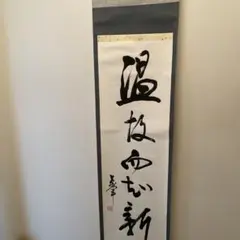 温故而知新